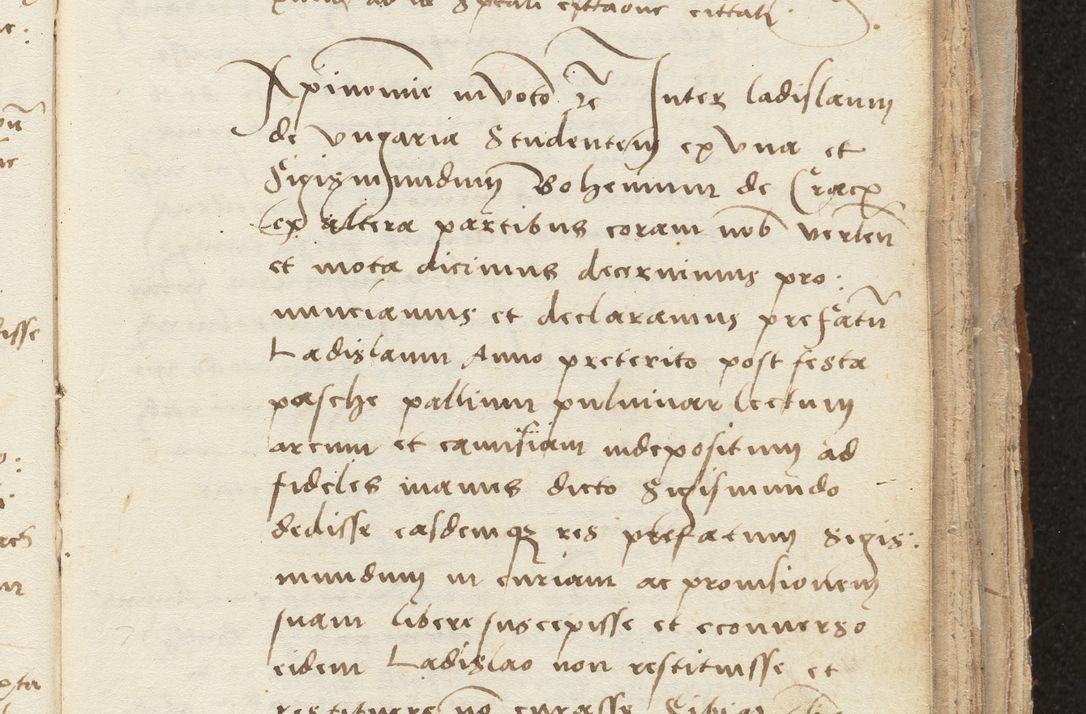 Xpi nomine invocato etc Inter Ladislaum
de Ungaria Studentem ex una et
Sigismundum Bohemum de Crac
ex altera partibus coram nob verten
et mota dicimus decernimus pro:
nunciamus et declaramus prefatu
Ladislaum Anno preterito post festa
pasche pallium pulvinar lectum
arcum et camisiam in depositum ad
fideles manus dicto Sigismundo
dedisse easdemq res prefatum Sigis:
mundum in curiam ac provisionem
suam libere suscepisse et econverso
eidem Ladislao non restituisse et
restituere no curasse